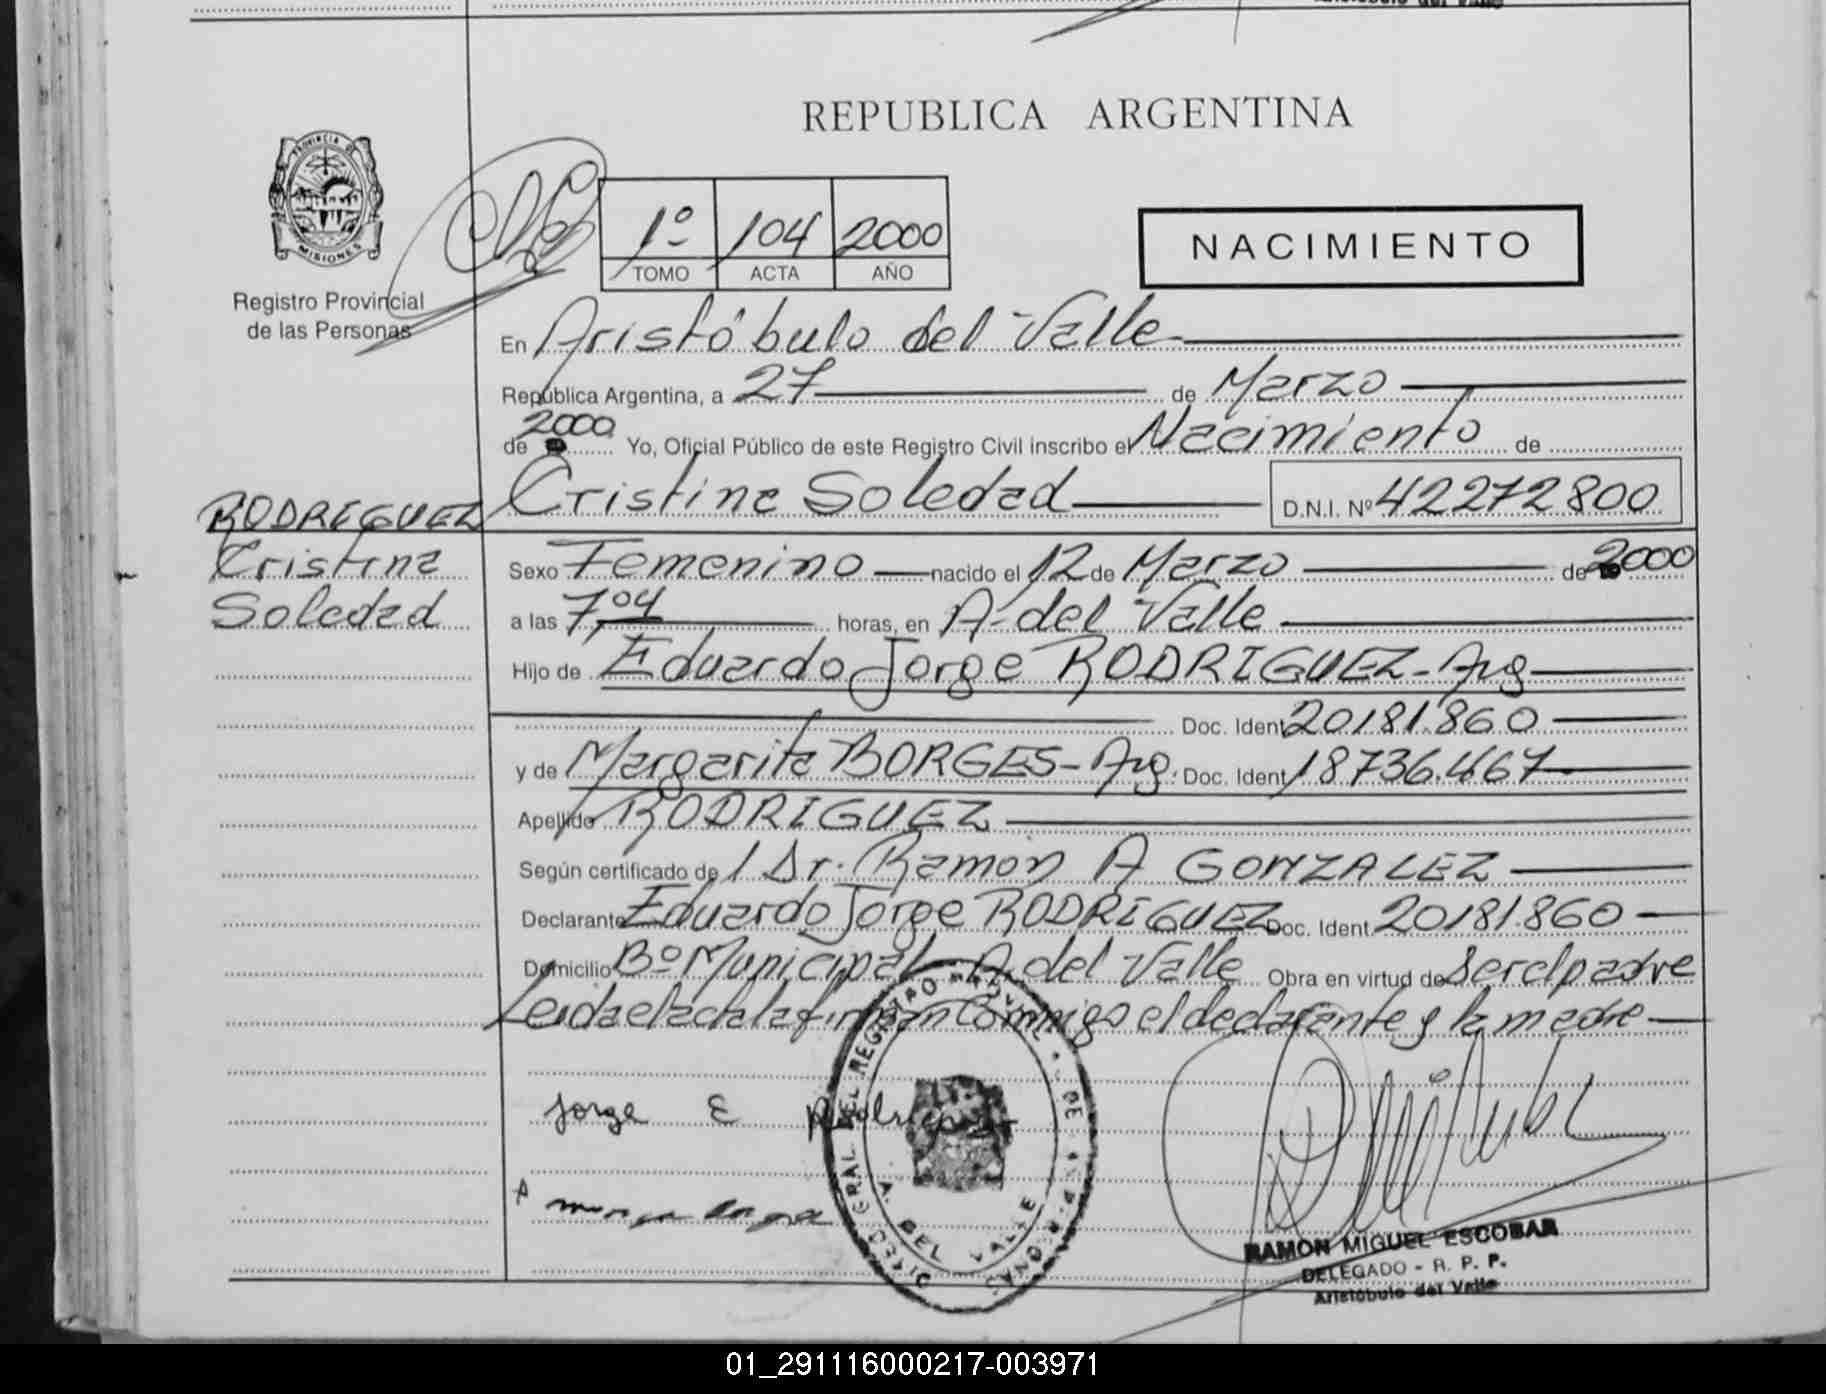 REPUBLICA ARGENTINA
PROVINCIA DE
MISIONES
Registro Provincial
de las Personas
1º 104 2000
TOMO ACTA AÑO
NACIMIENTO
En Aristóbulo del Valle
República Argentina, a 27 de Marzo
de 2000 Yo, Oficial Público de este Registro Civil inscribo el Nacimiento de
Cristina Soledad D.N.I. Nº 42272800
RODRIGUEZ
Cristina
Soledad
Sexo Femenino nacido el 12 de Marzo de 2000
a las 7,04 horas, en A. del Valle
Hijo de Eduardo Jorge RODRIGUEZ - Arg
Doc. Ident 20181.860
y de Margarita BORGES - Arg. Doc. Ident 18736.467
Apellido RODRIGUEZ
Según certificado de l Dr. Ramón A GONZALEZ
Declarante Eduardo Jorge RODRIGUEZ Doc. Ident 20181.860
Domicilio Bº Municipal A. del Valle Obra en virtud de ser el padre
Leida el acta la firman conmigo el declarante y la madre
Jorge E Rodriguez
DIREC. GRAL. DEL REGISTRO PROVINC. DE LAS PERSONAS
A. DEL VALLE
RAMON MIGUEL ESCOBAR
DELEGADO - R. P. P.
Aristóbulo del Valle
01_291116000217-003971